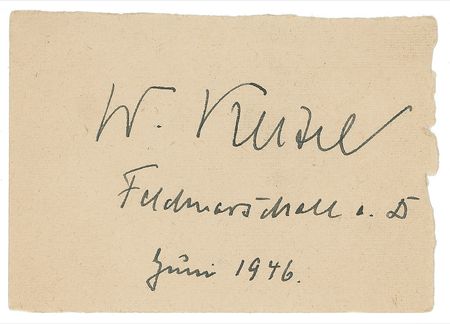 W. Keitel
Feldmarschall a. D
Juni 1946.